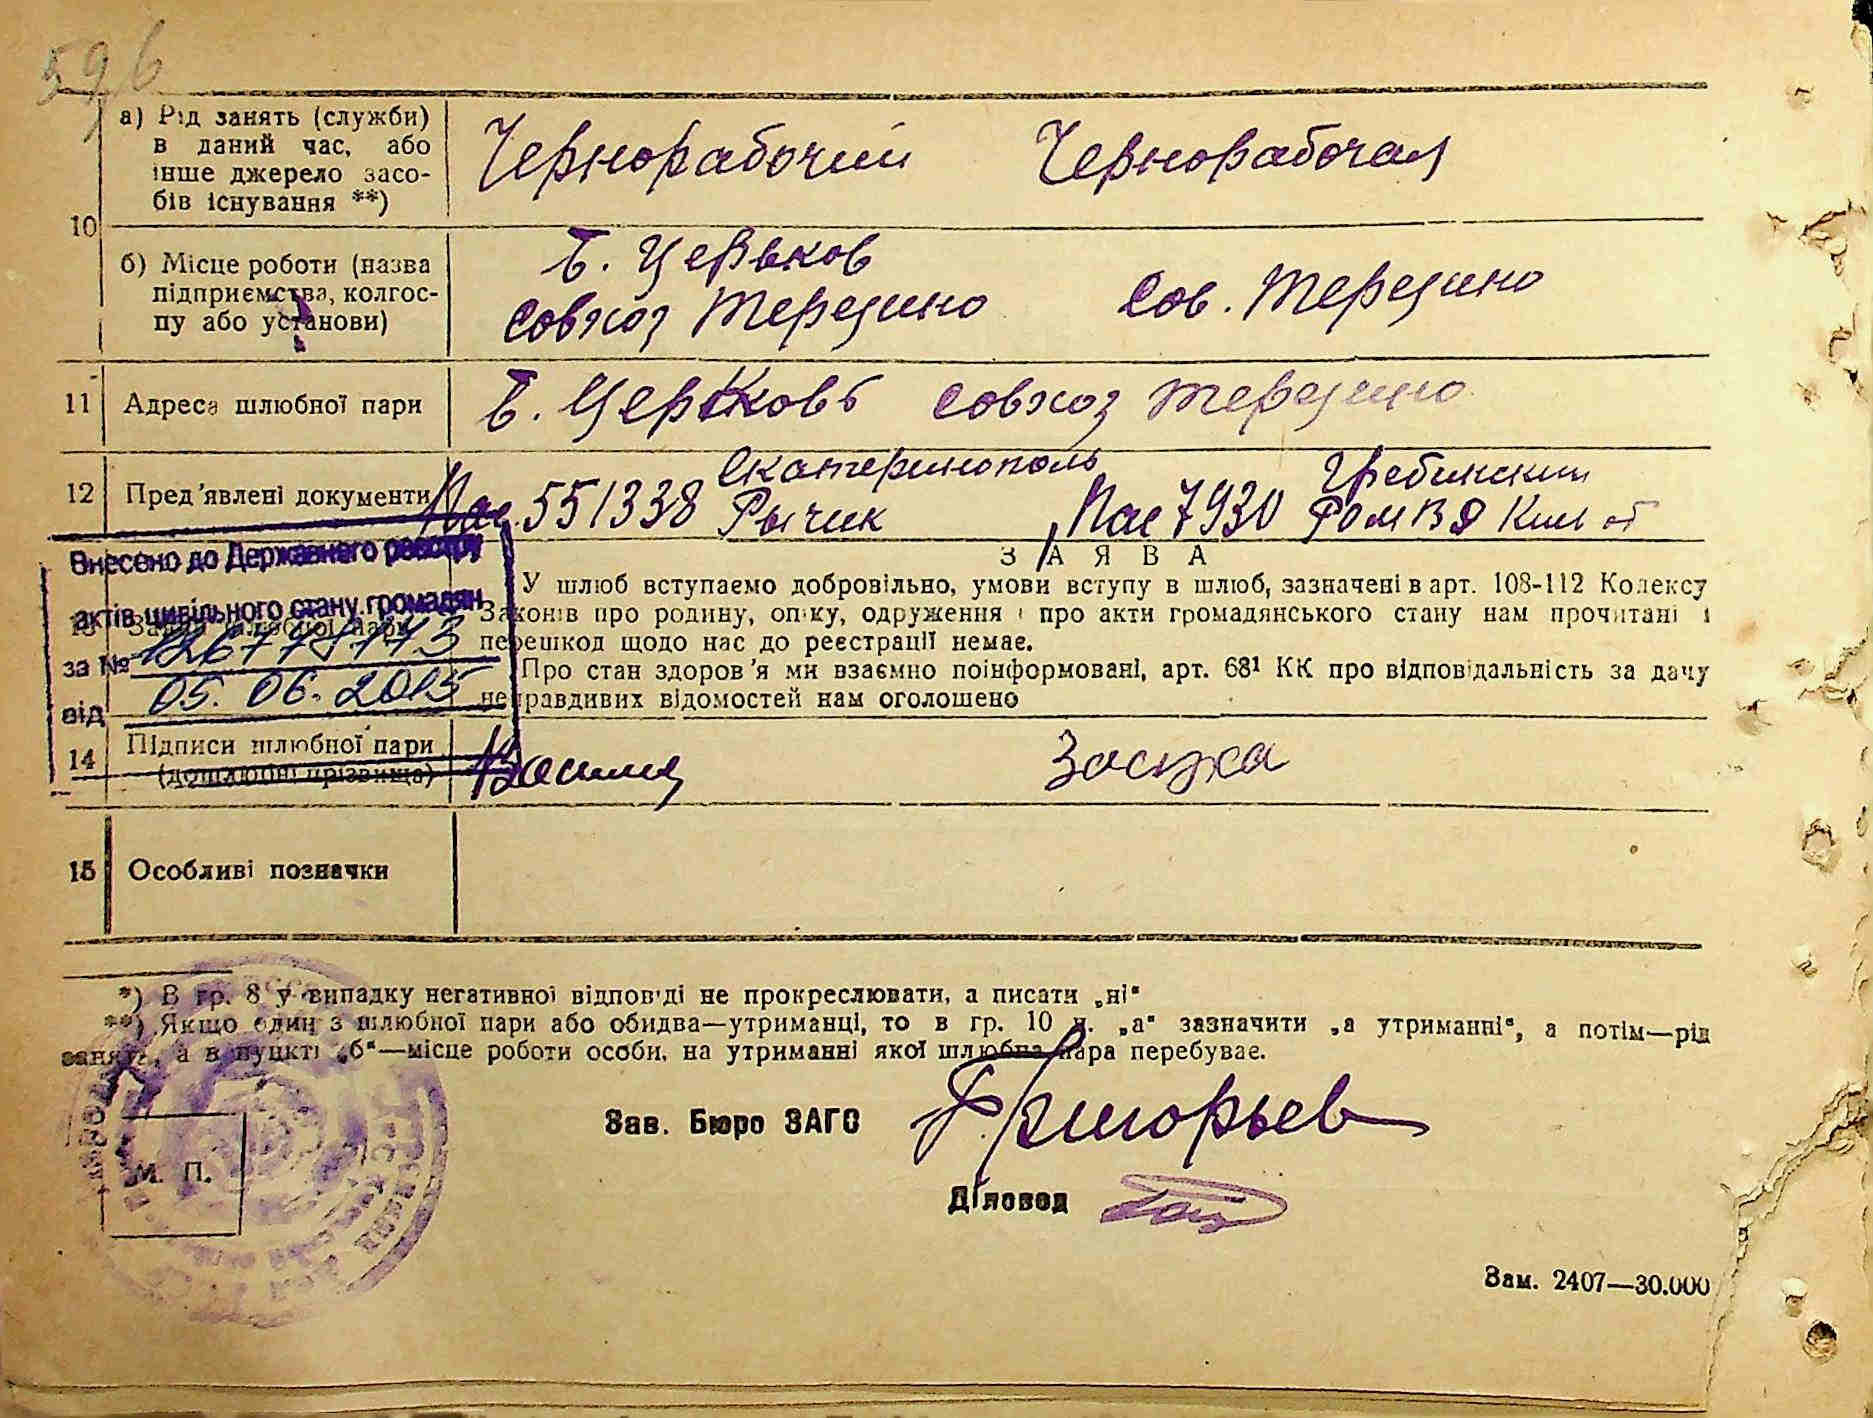 596
10
а) Рід занять (служби) в даний час, або інше джерело засобів існування **)
Чернорабочий
Чернорабочая
б) Місце роботи (назва підприємства, колгоспу або установи)
Б. Церьков
совхоз Терезино
Сов. Терезино
11 Адреса шлюбної пари
Б. Церковь совхоз Терезино
12 Пред'явлені документи
Пас. 551338
Екатеринополь
Пас 7930
Гребинский
РомВД Ки
Внесено до Державного реєстру
актів цивільного стану громадян
за №
від 05. 06. 2015
ЗАЯВА
У шлюб вступаємо добровільно, умови вступу в шлюб, зазначені в арт. 108-112 Кодексу
Законів про родину, опіку, одруження і про акти громадянського стану нам прочитані і
перешкод щодо нас до реєстрації немає.
Про стан здоров'я ми взаємно поінформовані, арт. 68¹ КК про відповідальність за дачу
неправдивих відомостей нам оголошено
14 Підписи шлюбної пари
(дошлюбні прізвища)
15 Особливі позначки
*) В гр. 8 у випадку негативної відповіді не прокреслювати, а писати „ні"
**) Якщо один з шлюбної пари або обидва—утриманці, то в гр. 10 п. „а" зазначити „а утриманні", а потім—рід
занять, а в пункті „б"—місце роботи особи, на утриманні якої шлюбна пара перебуває.
Зав. Бюро ЗАГС
Григорьев
Діловод
М. П.
Зам. 2407—30.000